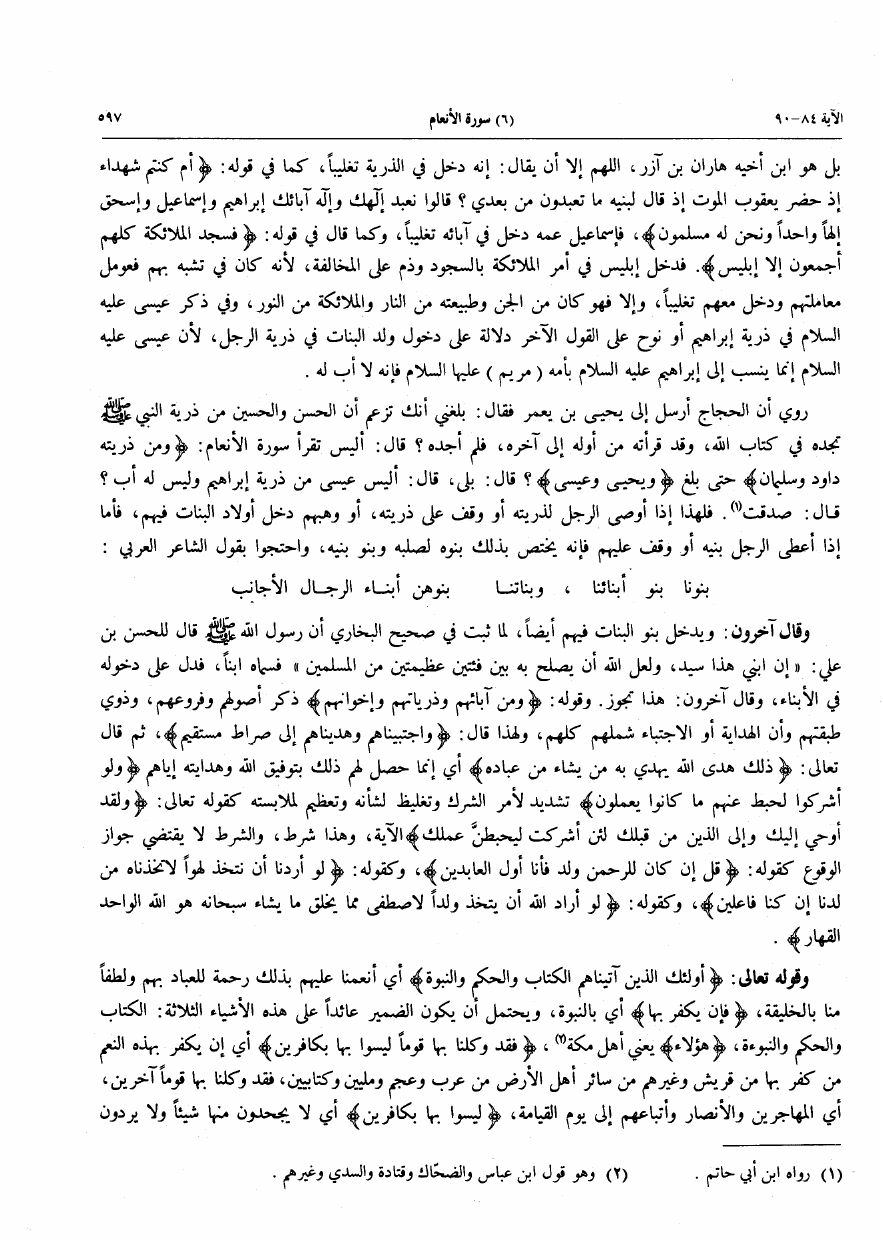 الآية ٨٤-٩٠
(٦) سورة الأنعام
٥٩٧
بل هو ابن أخيه هاران بن آزر، اللهم إلا أن يقال: إنه دخل في الذرية تغليباً، كما في قوله: ﴿أم كنتم شهداء
إذ حضر يعقوب الموت إذ قال لبنيه ما تعبدون من بعدي؟ قالوا نعبد إلٰهك وإلٰه آبائك إبراهيم وإسماعيل وإسحق
إلهاً واحداً ونحن له مسلمون﴾، فإسماعيل عمه دخل في آبائه تغليباً، وكما قال في قوله: ﴿فسجد الملائكة كلهم
أجمعون إلا إبليس﴾. فدخل إبليس في أمر الملائكة بالسجود وذم على المخالفة، لأنه كان في تشبه بهم فعومل
معاملتهم ودخل معهم تغليباً، وإلا فهو كان من الجن وطبيعته من النار والملائكة من النور، وفي ذكر عيسى عليه
السلام في ذرية إبراهيم أو نوح على القول الآخر دلالة على دخول ولد البنات في ذرية الرجل، لأن عيسى عليه
السلام إنما ينسب إلى إبراهيم عليه السلام بأمه (مريم) عليها السلام فإنه لا أب له.
روي أن الحجاج أرسل إلى يحيـى بن يعمر فقال: بلغني أنك تزعم أن الحسن والحسين من ذرية النبي ﷺ
تجده في كتاب الله، وقد قرأته من أوله إلى آخره، فلم أجده؟ قال: أليس تقرأ سورة الأنعام: ﴿ومن ذريته
داود وسليمان﴾ حتى بلغ ﴿ويحيـى وعيسى﴾؟ قال: بلى، قال: أليس عيسى من ذرية إبراهيم وليس له أب؟
قـال: صدقت(١). فلهذا إذا أوصى الرجل لذريته أو وقف على ذريته، أو وهبهم دخل أولاد البنات فيهم، فأما
إذا أعطى الرجل بنيه أو وقف عليهم فإنه يختص بذلك بنوه لصلبه وبنو بنيه، واحتجوا بقول الشاعر العربي:
بنونا بنو أبنائنا ، وبناتنـا بنوهن أبنـاء الرجـال الأجانب
وقال آخرون: ويدخل بنو البنات فيهم أيضاً، لما ثبت في صحيح البخاري أن رسول الله ﷺ قال للحسن بن
علي: «إن ابني هذا سيد، ولعل الله أن يصلح به بين فئتين عظيمتين من المسلمين» فسماه ابناً، فدل على دخوله
في الأبناء، وقال آخرون: هذا تجوز. وقوله: ﴿ومن آبائهم وذرياتهم وإخوانهم﴾ ذكر أصولهم وفروعهم، وذوي
طبقتهم وأن الهداية أو الاجتباء شملهم كلهم، ولهذا قال: ﴿واجتبيناهم وهديناهم إلى صراط مستقيم﴾، ثم قال
تعالى: ﴿ذلك هدى الله يهدي به من يشاء من عباده﴾ أي إنما حصل لهم ذلك بتوفيق الله وهدايته إياهم ﴿ولو
أشركوا لحبط عنهم ما كانوا يعملون﴾ تشديد لأمر الشرك وتغليظ لشأنه وتعظيم لملابسته كقوله تعالى: ﴿ولقد
أوحي إليك وإلى الذين من قبلك لئن أشركت ليحبطنَّ عملك﴾ الآية، وهذا شرط، والشرط لا يقتضي جواز
الوقوع كقوله: ﴿قل إن كان للرحمن ولد فأنا أول العابدين﴾، وكقوله: ﴿لو أردنا أن نتخذ لهواً لاتخذناه من
لدنا إن كنا فاعلين﴾، وكقوله: ﴿لو أراد الله أن يتخذ ولداً لاصطفى مما يخلق ما يشاء سبحانه هو الله الواحد
القهار﴾.
وقوله تعالى: ﴿أولئك الذين آتيناهم الكتاب والحكم والنبوة﴾ أي أنعمنا عليهم بذلك رحمة للعباد بهم ولطفاً
منا بالخليقة، ﴿فإن يكفر بها﴾ أي بالنبوة، ويحتمل أن يكون الضمير عائداً على هذه الأشياء الثلاثة: الكتاب
والحكم والنبوءة، ﴿هؤلاء﴾ يعني أهل مكة(٢)، ﴿فقد وكلنا بها قوماً ليسوا بها بكافرين﴾ أي إن يكفر بهذه النعم
من كفر بها من قريش وغيرهم من سائر أهل الأرض من عرب وعجم ومليين وكتابيين، فقد وكلنا بها قوماً آخرين،
أي المهاجرين والأنصار وأتباعهم إلى يوم القيامة، ﴿ليسوا بها بكافرين﴾ أي لا يجحدون منها شيئاً ولا يردون
(١) رواه ابن أبي حاتم.
(٢) وهو قول ابن عباس والضحّاك وقتادة والسدي وغيرهم.